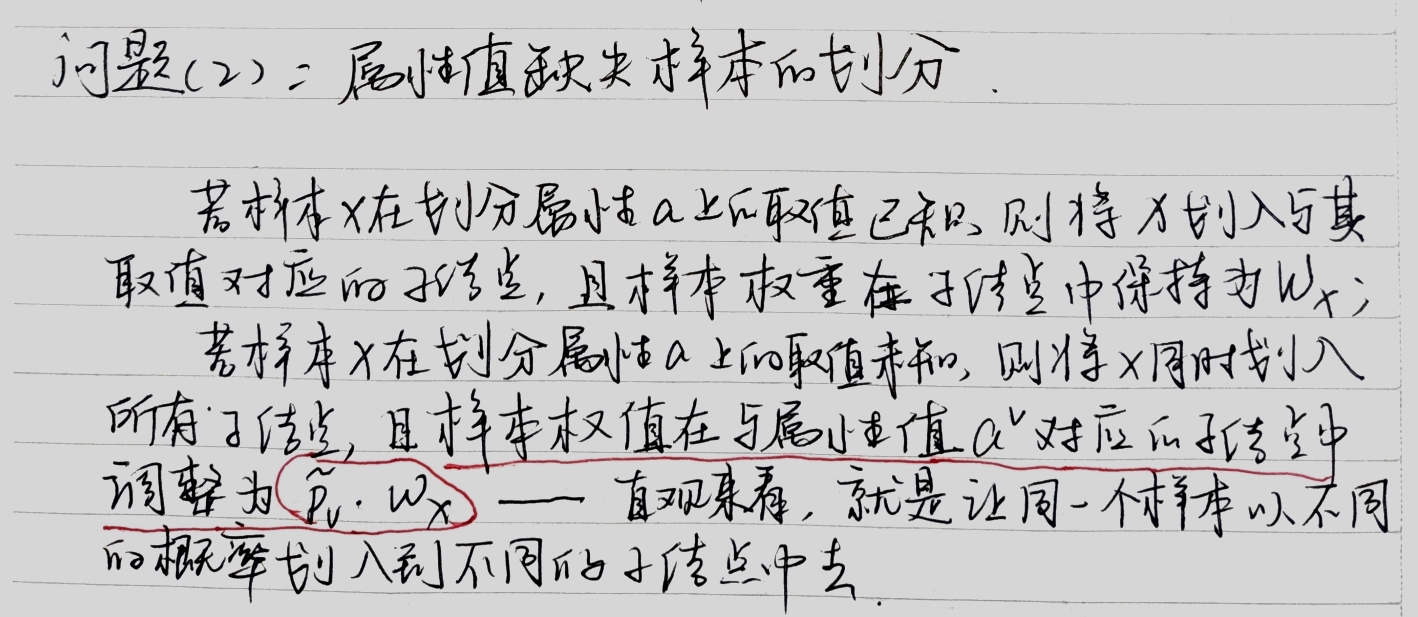 问题(2): 属性值缺失样本的划分.
若样本x在划分属性a上的取值已知, 则将x划入与其
取值对应的子结点, 且样本权重在子结点中保持为Wₓ;
若样本x在划分属性a上的取值未知, 则将x同时划入
所有子结点, 且样本权值在与属性值aᵛ对应的子结点中
调整为 p̃ᵥ·Wₓ —— 直观来看, 就是让同一个样本以不同
的概率划入到不同的子结点中去.